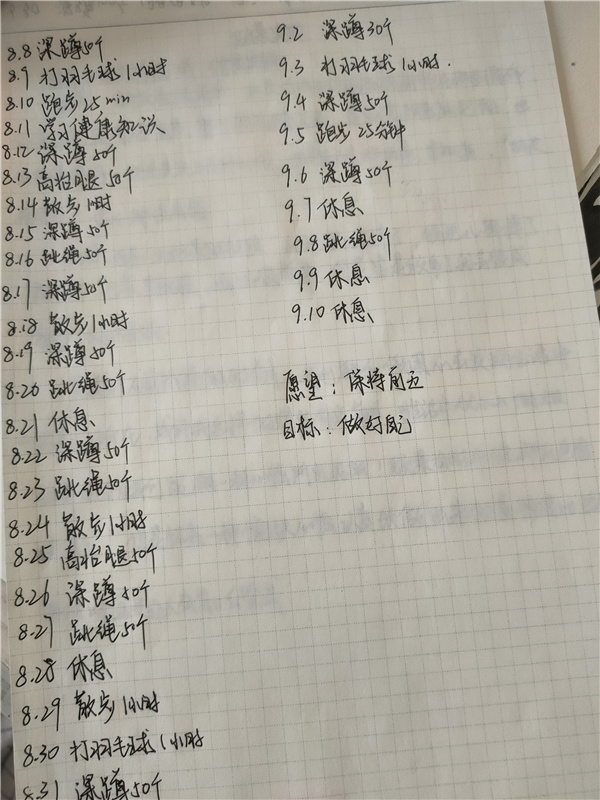 8.8 深蹲50个
8.9 打羽毛球1小时
8.10 跑步25min
8.11 学习健康知识
8.12 深蹲50个
8.13 高抬腿50个
8.14 散步1小时
8.15 深蹲50个
8.16 跳绳50个
8.17 深蹲50个
8.18 散步1小时
8.19 深蹲50个
8.20 跳绳50个
8.21 休息
8.22 深蹲50个
8.23 跳绳50个
8.24 散步1小时
8.25 高抬腿50个
8.26 深蹲50个
8.27 跳绳50个
8.28 休息
8.29 散步1小时
8.30 打羽毛球1小时
8.31 深蹲50个
9.2 深蹲30个
9.3 打羽毛球1小时.
9.4 深蹲50个
9.5 跑步25分钟
9.6 深蹲50个
9.7 休息
9.8 跳绳50个
9.9 休息
9.10 休息
愿望：保持前五
目标：做好自己